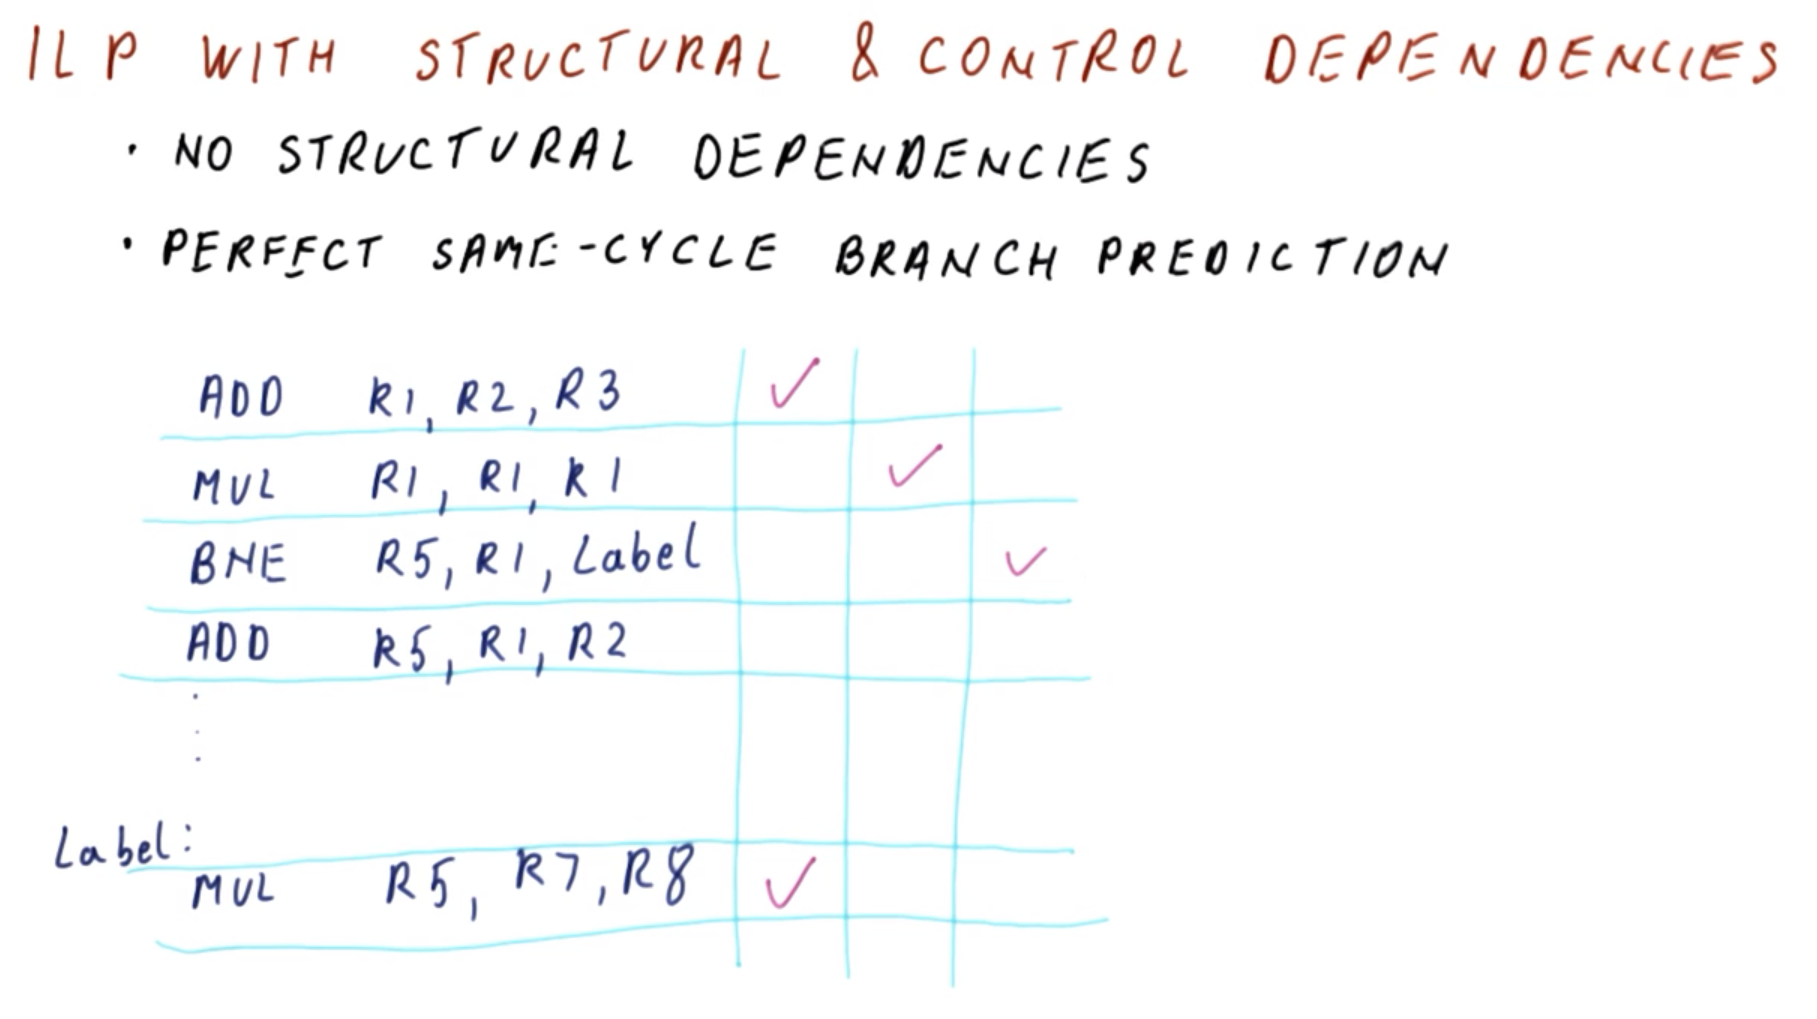 ILP WITH STRUCTURAL & CONTROL DEPENDENCIES
• NO STRUCTURAL DEPENDENCIES
• PERFECT SAME-CYCLE BRANCH PREDICTION
ADD R1, R2, R3 ✓
MUL R1, R1, R1 ✓
BNE R5, R1, Label ✓
ADD R5, R1, R2
Label:
MUL R5, R7, R8 ✓